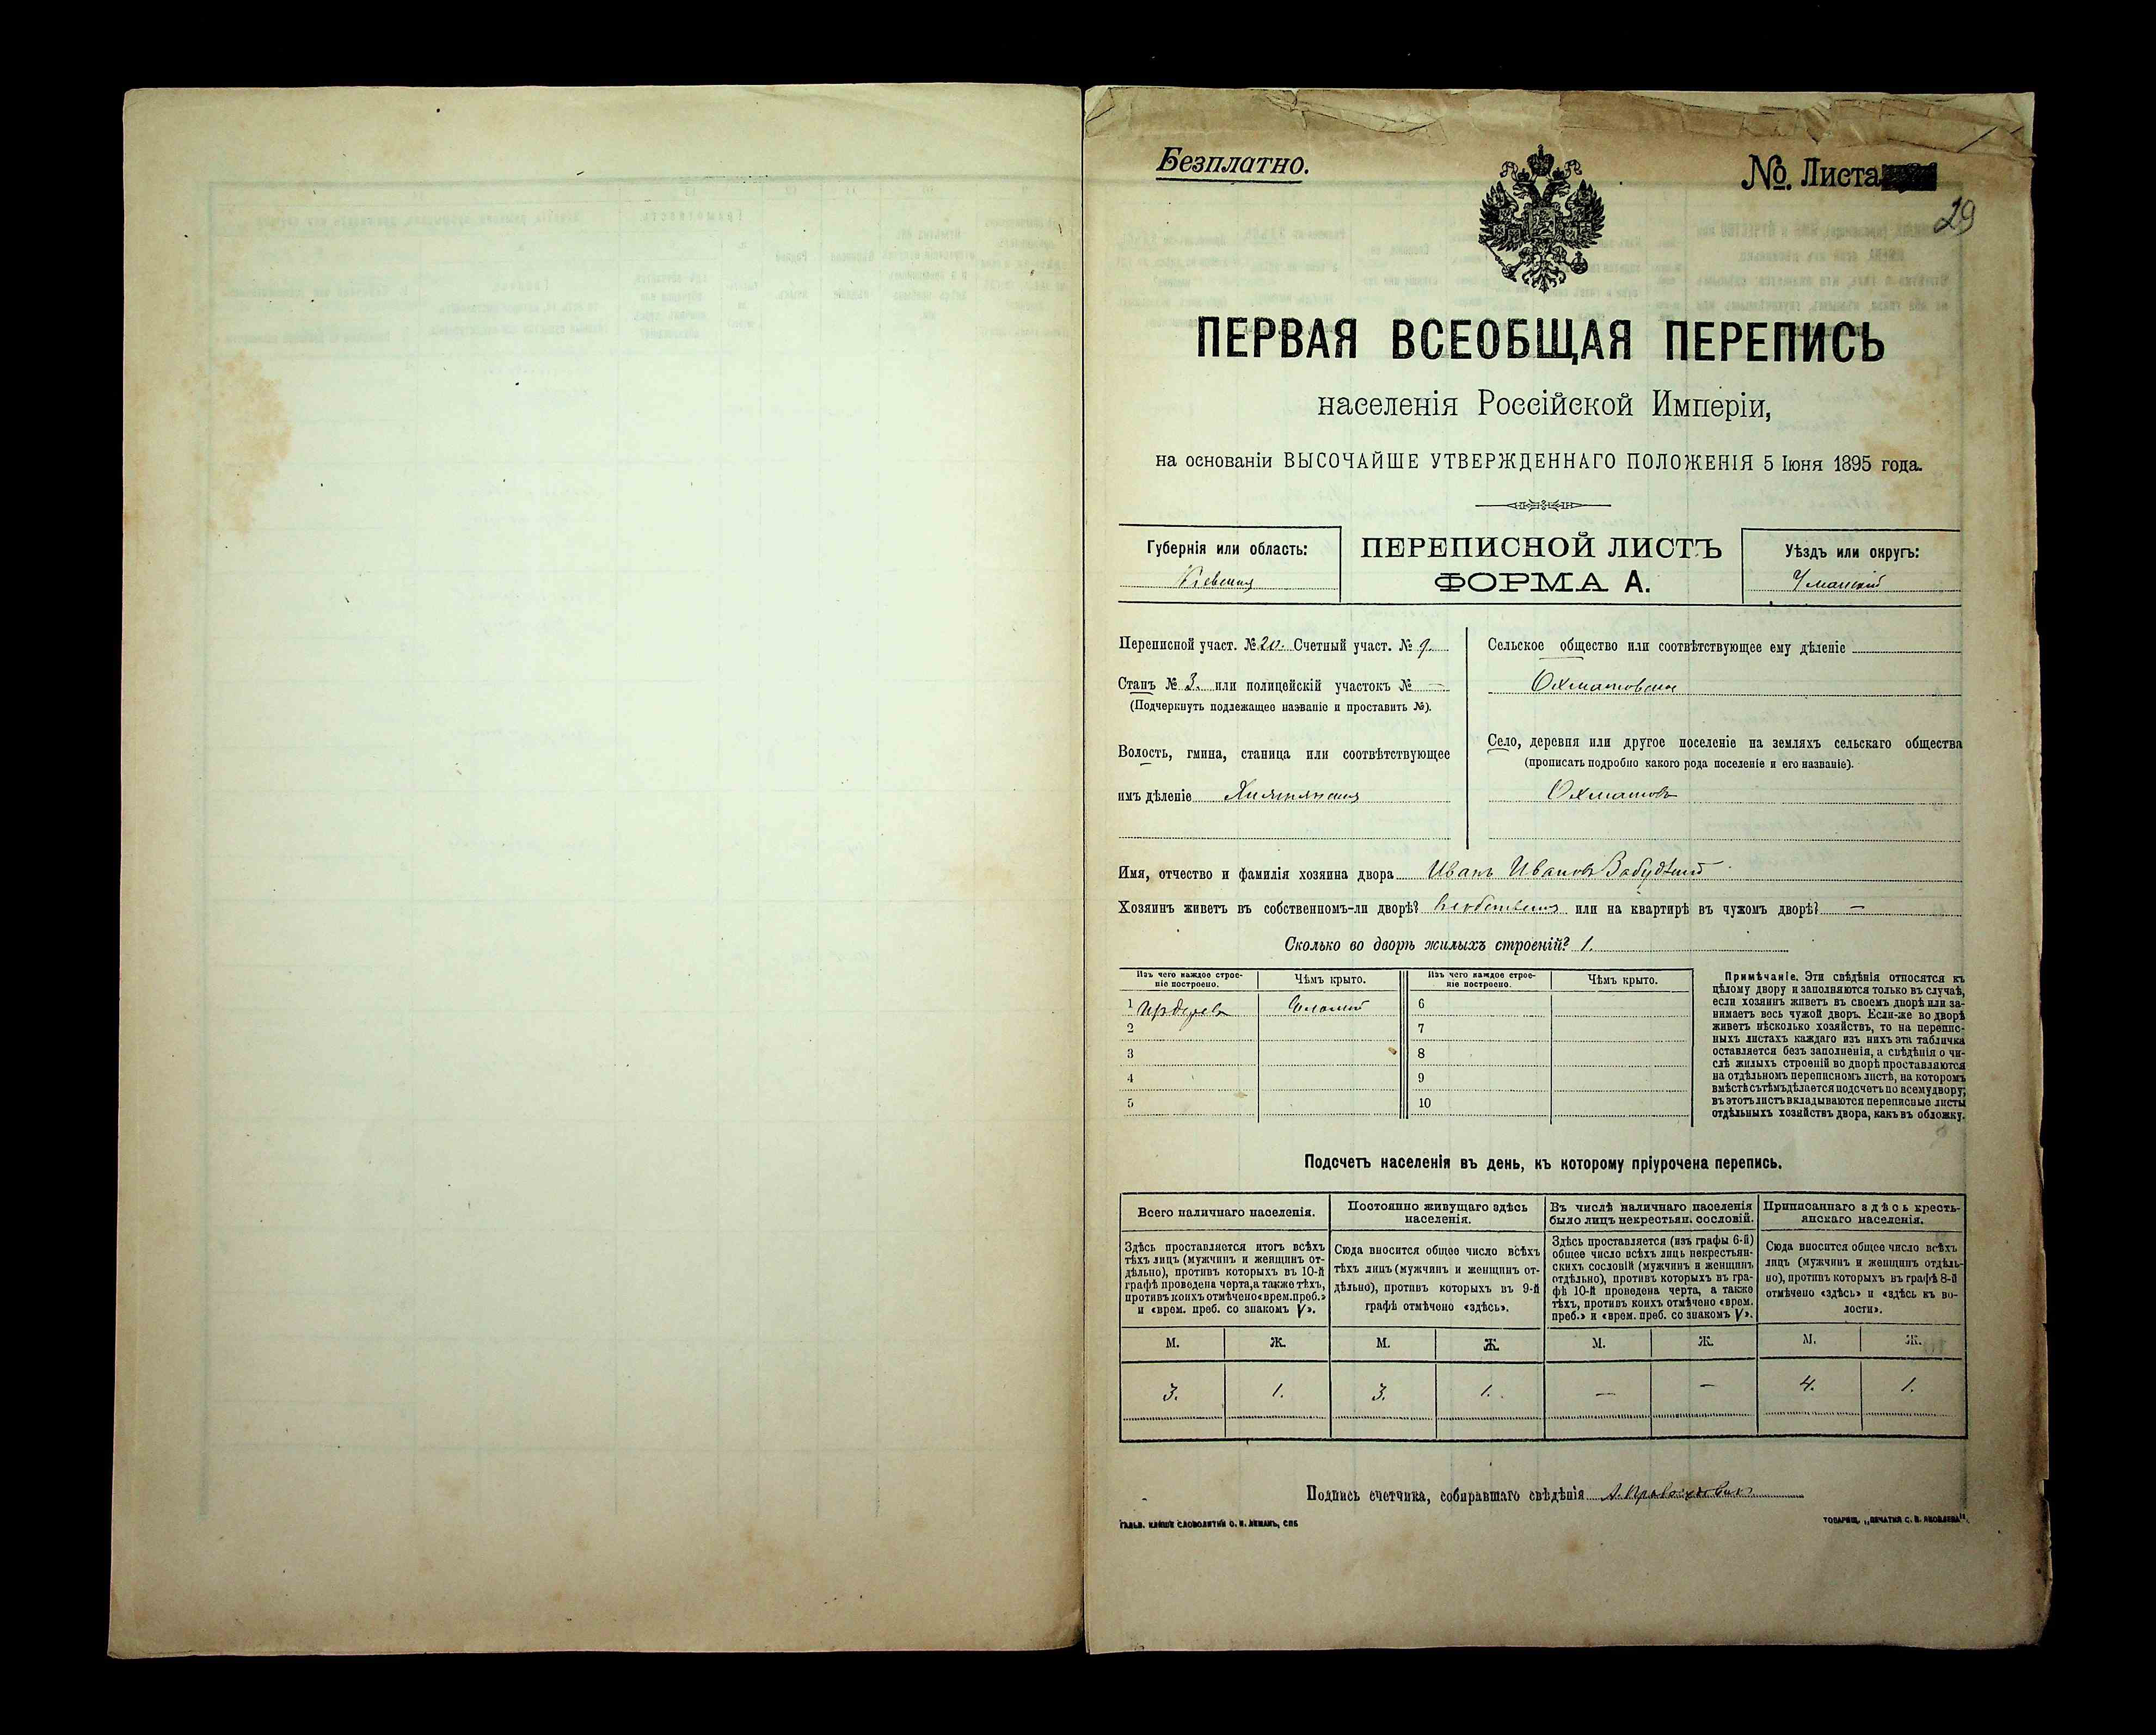 Безплатно.
№. Листа
29
ПЕРВАЯ ВСЕОБЩАЯ ПЕРЕПИСЬ
населенія Россійской Имперіи,
на основаніи ВЫСОЧАЙШЕ УТВЕРЖДЕННАГО ПОЛОЖЕНІЯ 5 Іюня 1895 года.
Губернія или область:
Кіевская
ПЕРЕПИСНОЙ ЛИСТЪ
ФОРМА А.
Уѣздъ или округъ:
Уманскій
Переписной участ. № 20. Счетный участ. № 9.
Станъ № 3. или полицейскій участокъ № —
(Подчеркнуть подлежащее названіе и проставить №).
Волость, гмина, станица или соотвѣтствующее
имъ дѣленіе
Сельское общество или соотвѣтствующее ему дѣленіе
Охматовское
Село, деревня или другое поселеніе на земляхъ сельскаго общества
(прописать подробно какого рода поселеніе и его названіе).
Охматовъ
Имя, отчество и фамилія хозяина двора Иванъ Ивановъ
Хозяинъ живетъ въ собственномъ-ли дворѣ? или на квартирѣ въ чужомъ дворѣ? —
Сколько во дворѣ жилыхъ строеній? 1.
Изъ чего каждое строе-
ніе построено.
Чѣмъ крыто.
Изъ чего каждое строе-
ніе построено.
Чѣмъ крыто.
1 Соломой 6
2 7
3 8
4 9
5 10
Примѣчаніе. Эти свѣдѣнія относятся къ
цѣлому двору и заполняются только въ случаѣ,
если хозяинъ живетъ въ своемъ дворѣ или за-
нимаетъ весь чужой дворъ. Если-же во дворѣ
живетъ нѣсколько хозяйствъ, то на перепис-
ныхъ листахъ каждаго изъ нихъ эта табличка
оставляется безъ заполненія, а свѣдѣнія о чи-
слѣ жилыхъ строеній во дворѣ проставляются
на отдѣльномъ переписномъ листѣ, на которомъ
вмѣстѣ съ тѣмъ дѣлается подсчетъ по всему двору;
въ этотъ листъ вкладываются переписные листы
отдѣльныхъ хозяйствъ двора, какъ въ обложку.
Подсчетъ населенія въ день, къ которому пріурочена перепись.
Всего наличнаго населенія.
Постоянно живущаго здѣсь
населенія.
Въ числѣ наличнаго населенія
было лицъ некрестьян. сословій.
Приписаннаго здѣсь кресть-
янскаго населенія.
Здѣсь проставляется итогъ всѣхъ
тѣхъ лицъ (мужчинъ и женщинъ от-
дѣльно), противъ которыхъ въ 10-й
графѣ проведена черта, а также тѣхъ,
противъ коихъ отмѣчено «врем. преб.»
и «врем. преб. со знакомъ V».
Сюда вносится общее число всѣхъ
тѣхъ лицъ (мужчинъ и женщинъ от-
дѣльно), противъ которыхъ въ 9-й
графѣ отмѣчено «здѣсь».
Здѣсь проставляется (изъ графы 6-й)
общее число всѣхъ лицъ некрестьян-
скихъ сословій (мужчинъ и женщинъ
отдѣльно), противъ которыхъ въ гра-
фѣ 10-й проведена черта, а также
тѣхъ, противъ коихъ отмѣчено «врем.
преб.» и «врем. преб. со знакомъ V».
Сюда вносится общее число всѣхъ
лицъ (мужчинъ и женщинъ отдѣль-
но), противъ которыхъ въ графѣ 8-й
отмѣчено «здѣсь» и «здѣсь къ во-
лости».
М. Ж. М. Ж. М. Ж. М. Ж.
3. 1. 3. 1. — — 4. 1.
Подпись счетчика, собиравшаго свѣдѣнія
ГАЛЬВ. КЛИШЕ СЛОВОЛИТНИ О. И. ЛЕМАНЪ, СПБ.
ТОВАРИЩ. „ПЕЧАТНЯ С. П. ЯКОВЛЕВА".